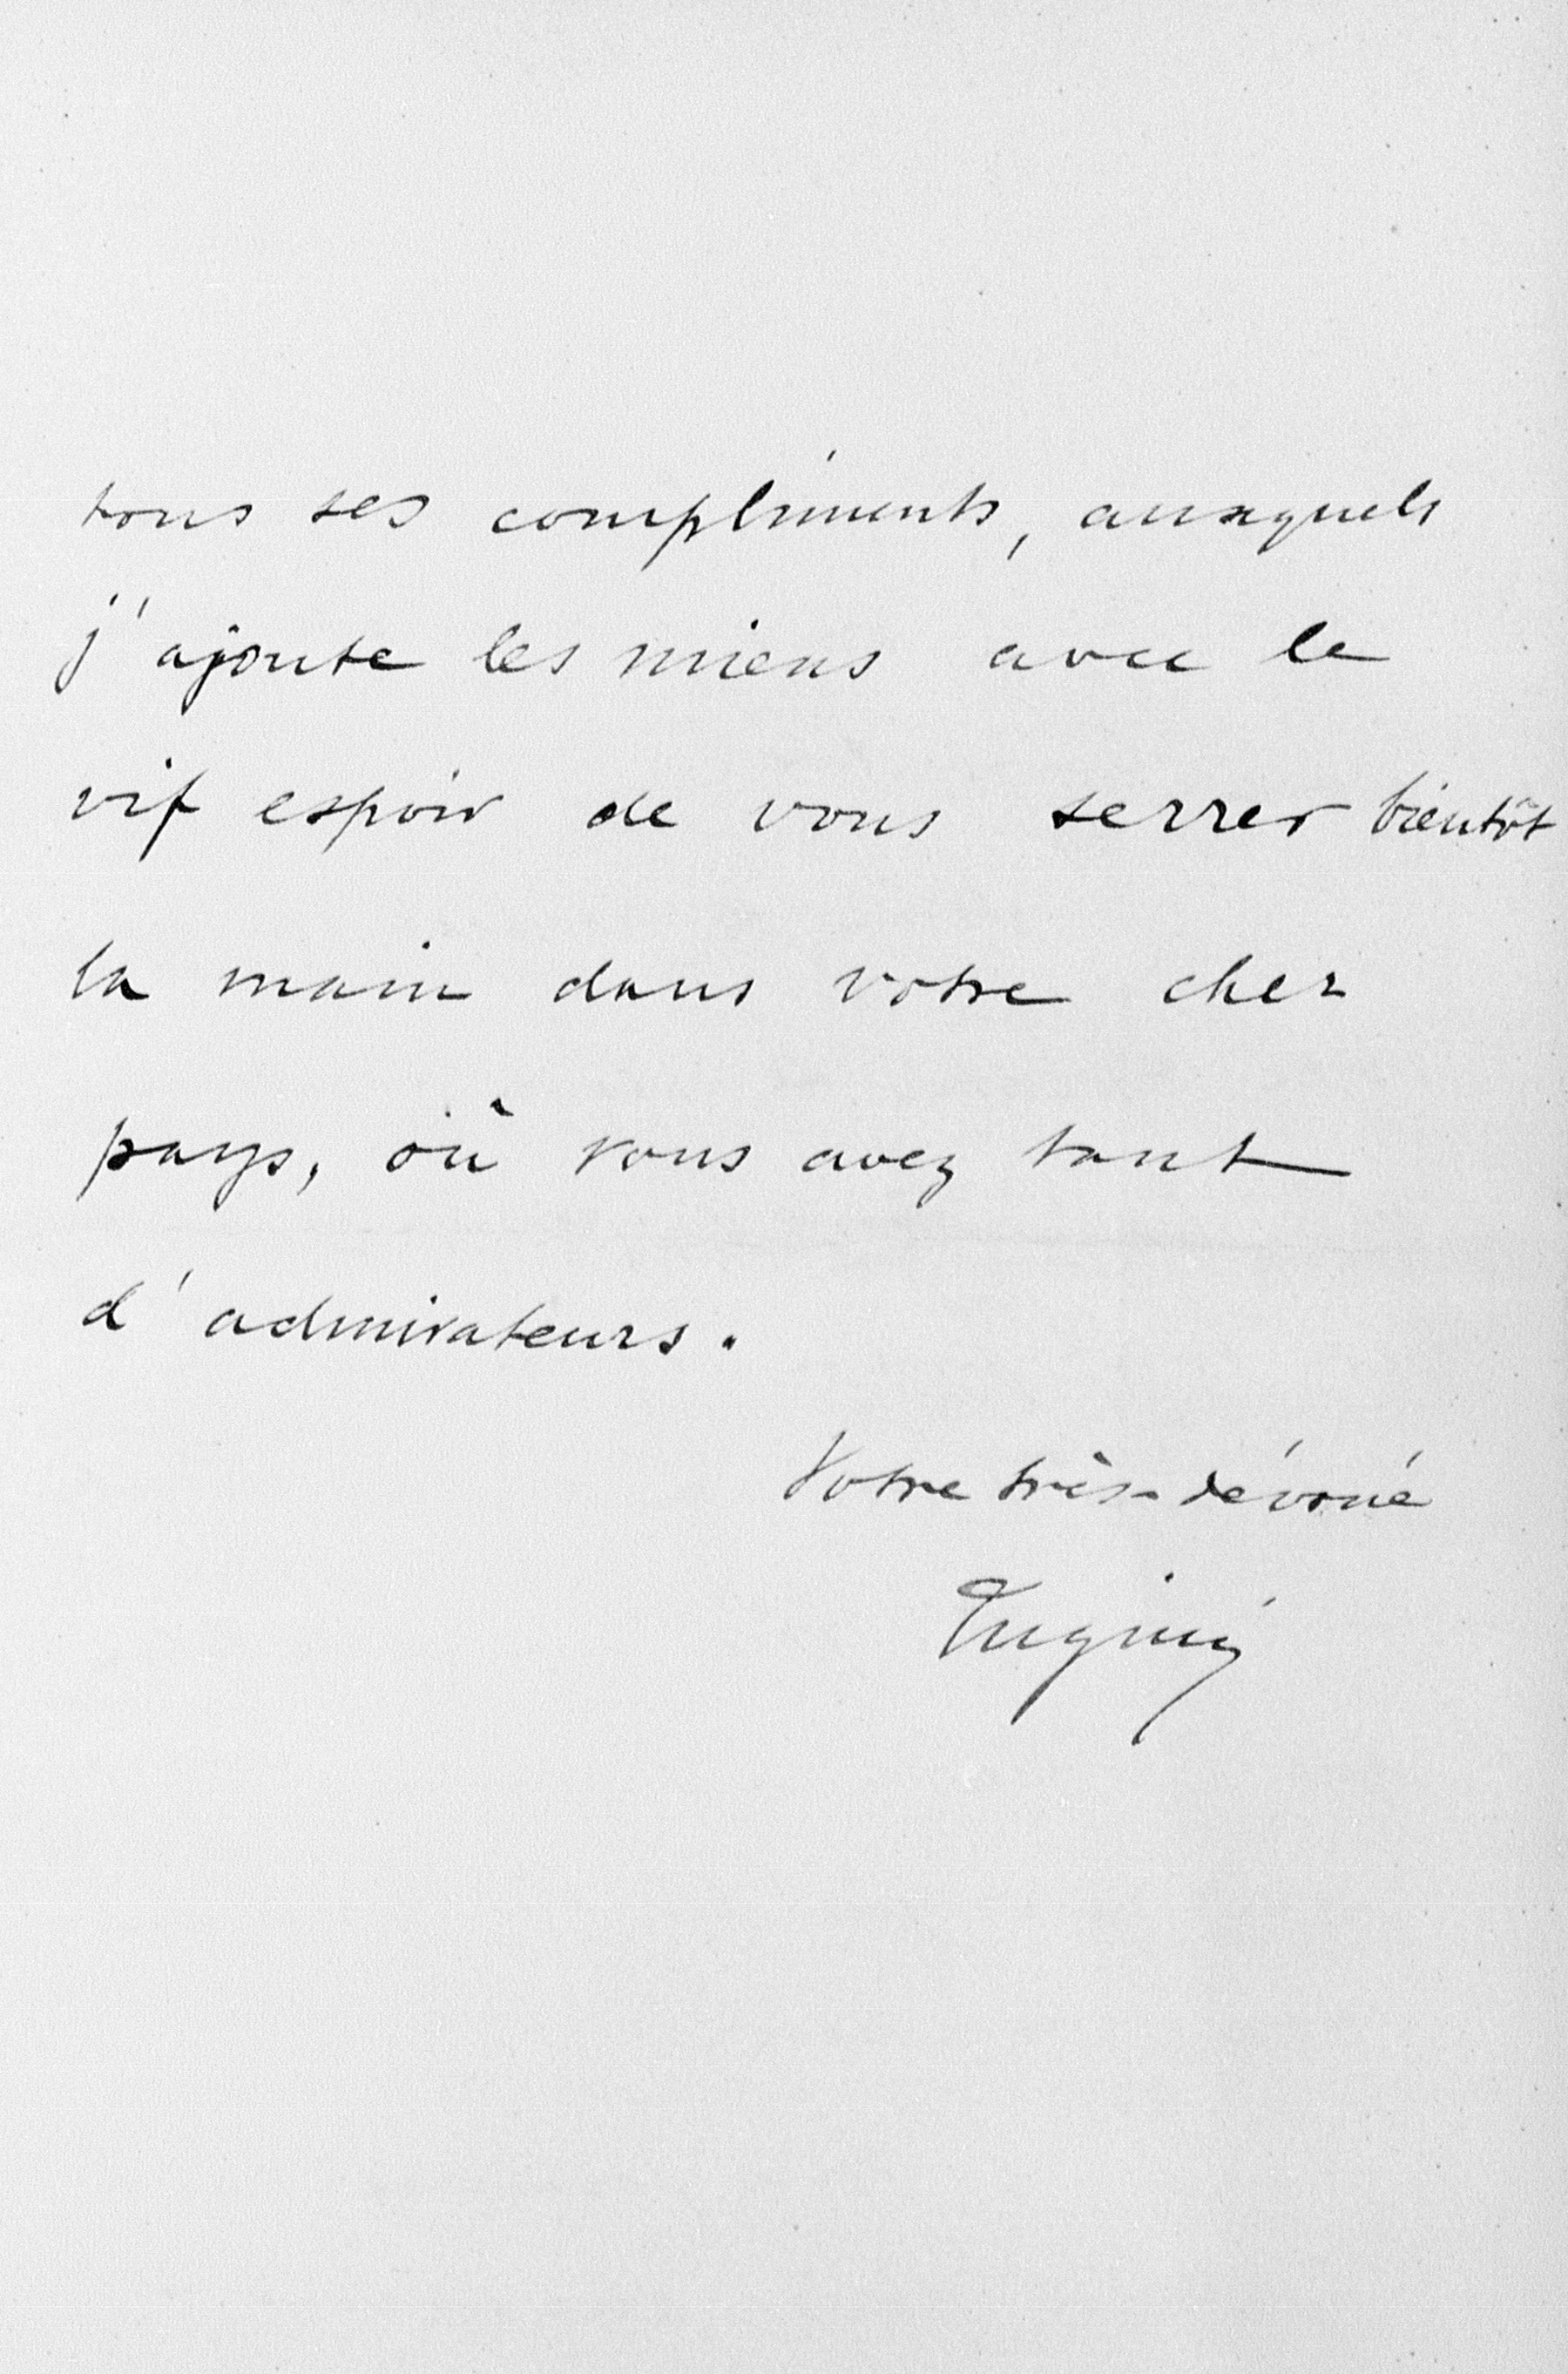 tous ses compliments, auxquels
j'ajoute les miens avec le
vif espoir de vous serrer bientôt
la main dans votre cher
pays, où vous avez tant
d'admirateurs.
Votre très-dévoué